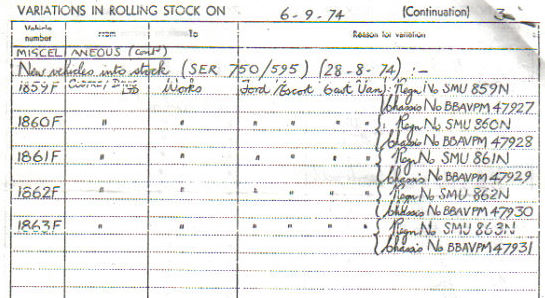 VARIATIONS IN ROLLING STOCK ON 6-9-74 (Continuation) 3
Vehicle number From To Reason for variation
MISCELLANEOUS (Cont)
New vehicles into stock (SER 750/595) (28-8-74) :-
1859F Works Ford Escort 6cwt Van): Regn No SMU 859N
Chassis No BBAVPM 47927
1860F " " " " " " Regn No SMU 860N
Chassis No BBAVPM 47928
1861F " " " " " " Regn No SMU 861N
Chassis No BBAVPM 47929
1862F " " " " " " Regn No SMU 862N
Chassis No BBAVPM 47930
1863F " " " " " " Regn No SMU 863N
Chassis No BBAVPM 47931